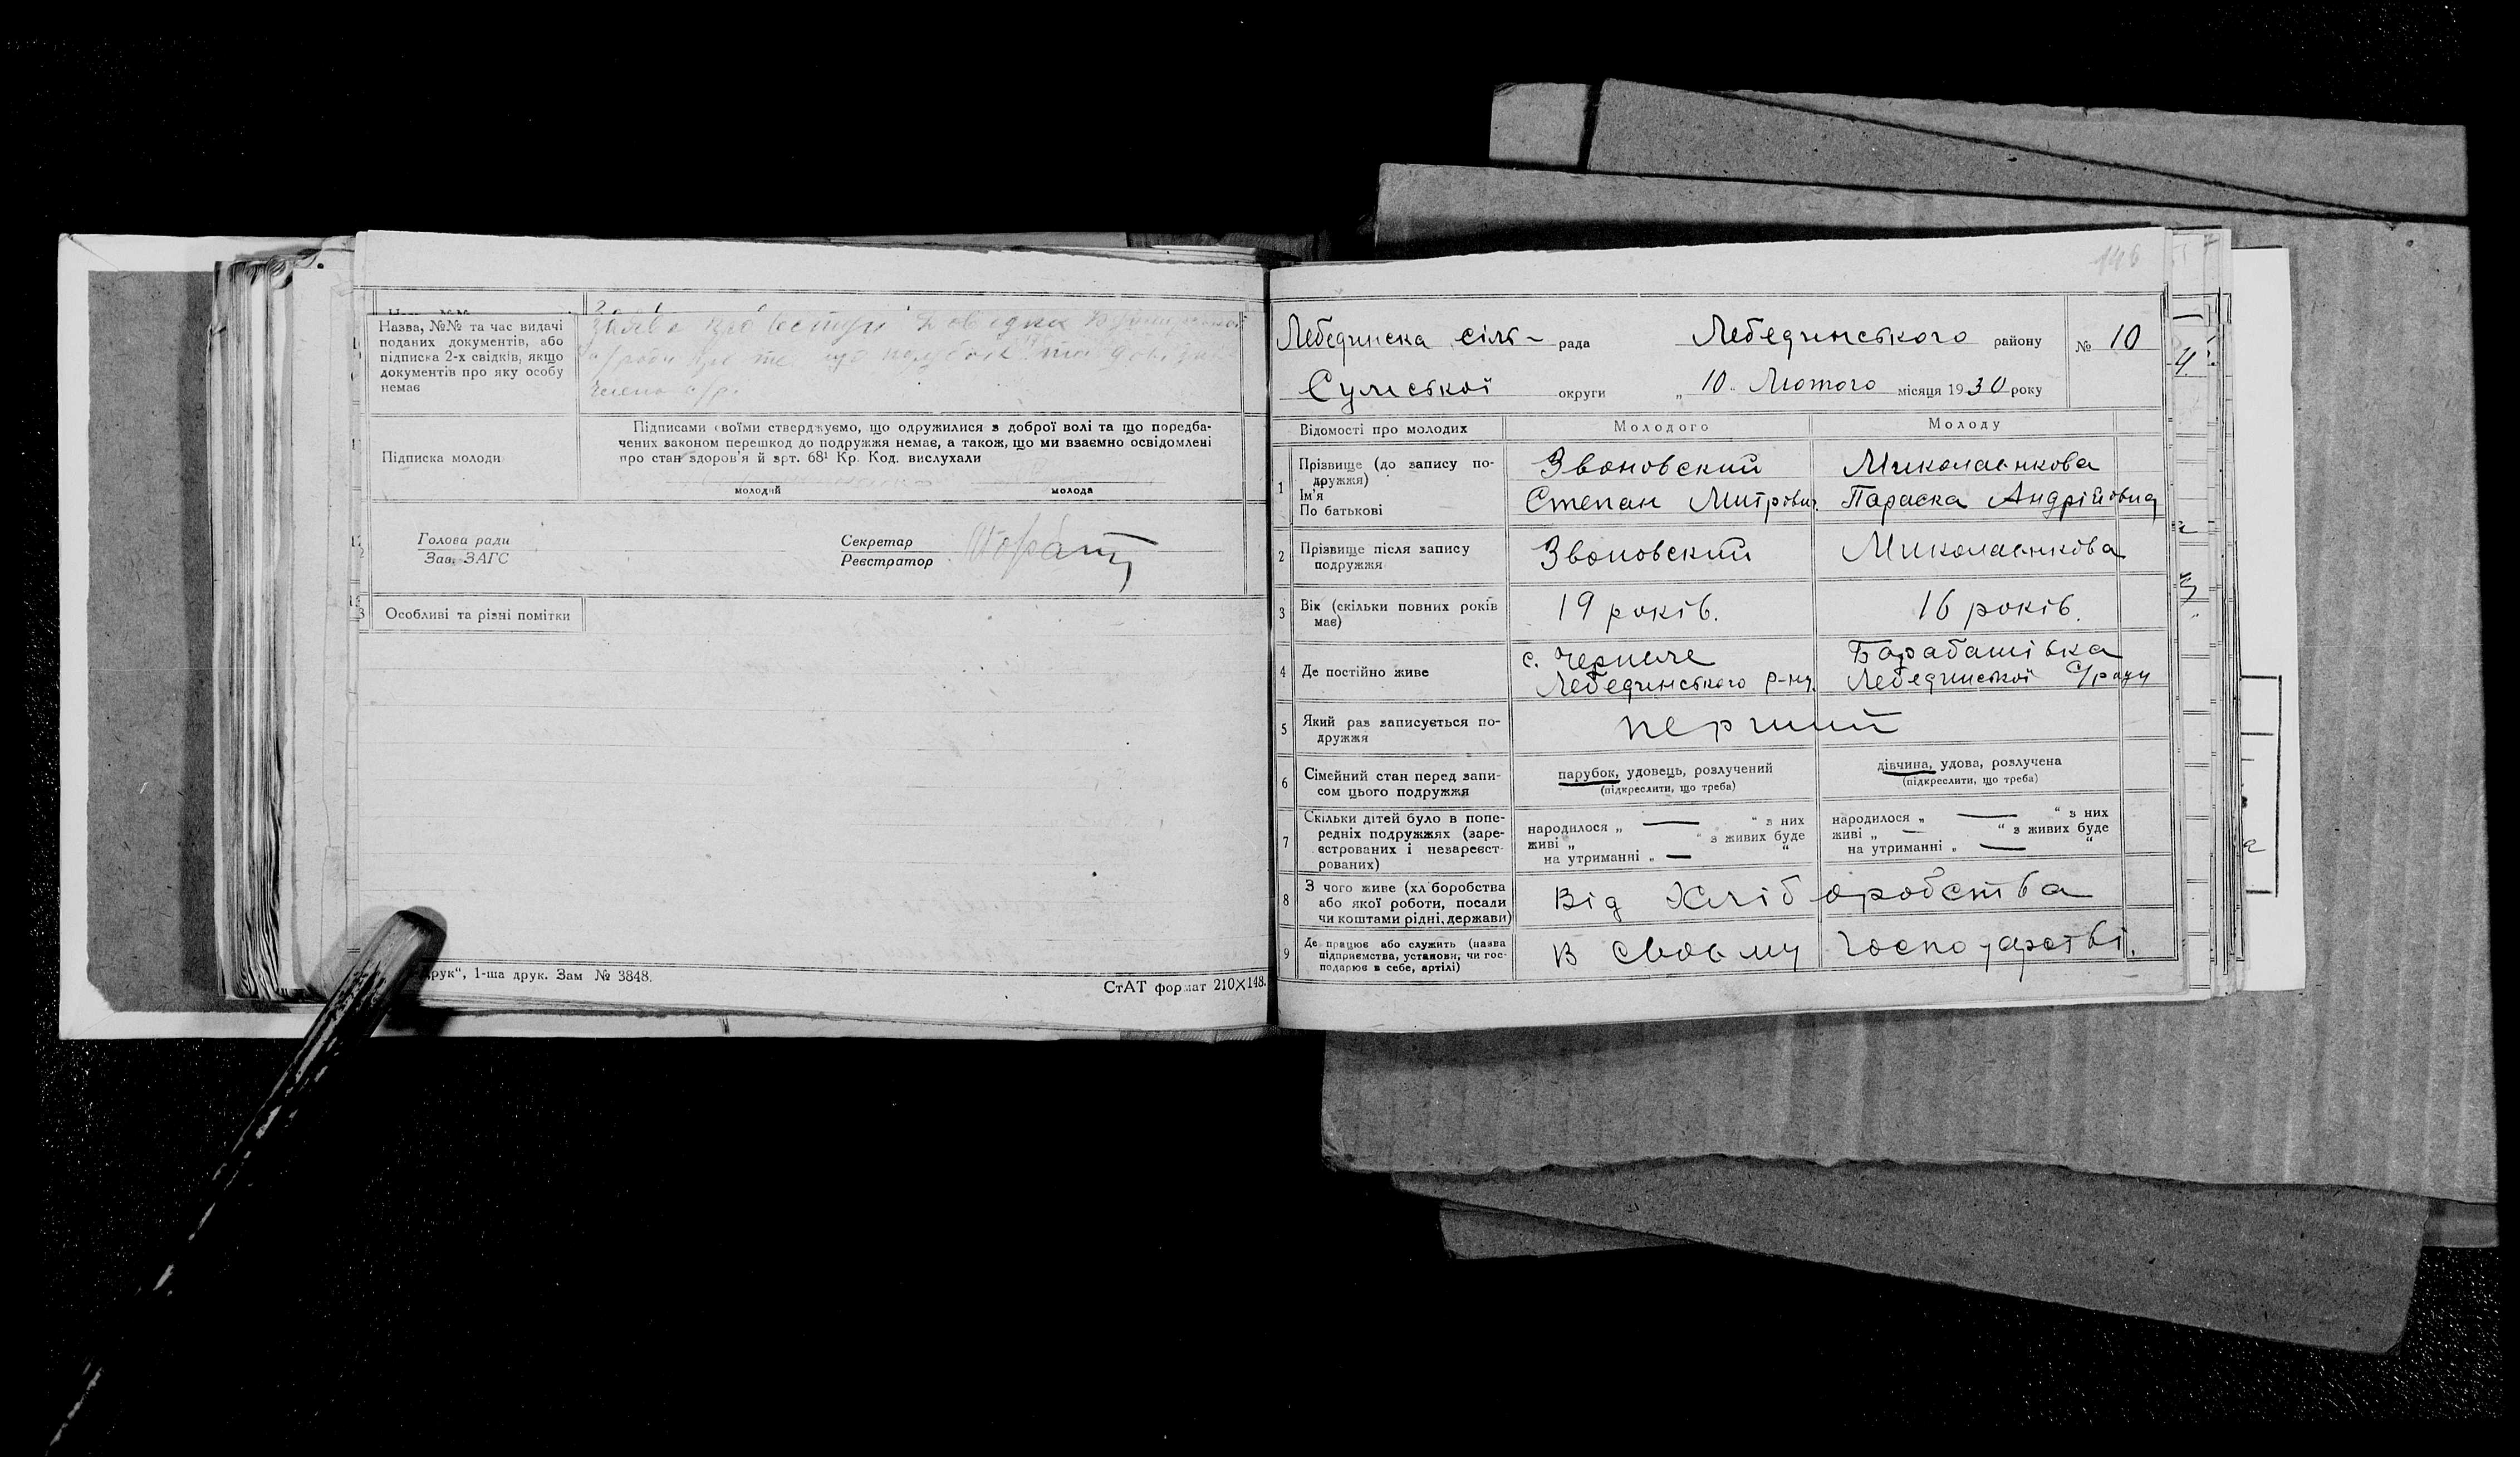 Назва, №№ та час видачі
поданих документів, або
підписка 2-х свідків, якщо
документів про яку особу
немає
Підписка молоди
Підписами своїми стверджуємо, що одружилися з доброї волі та що передба-
чених законом перешкод до подружжя немає, а також, що ми взаємно освідомлені
про стан здоров'я й арт. 68¹ Кр. Код. вислухали
молодий молода
Голова ради
Зав. ЗАГС
Секретар
Реєстратор
Особливі та різні помітки
друк“, 1-ша друк. Зам № 3848.
СтАТ формат 210×148.
146
Лебединска сіль- рада Лебединського району № 10
Сумської округи „ 10 „ Лютого місяця 1930 року
Відомості про молодих Молодого Молоду
1 Прізвище (до запису по-
дружжя)
Ім'я
По батькові
Звоновский
Степан Митрович
Миколаенкова
Параска Андрійовна
2 Прізвище після запису
подружжя
Звоновский Миколаенкова
3 Вік (скільки повних років
має)
19 років. 16 років.
4 Де постійно живе
с. Черпеле
Лебединського р-ну.
Барабашівка
Лебединської С/ради
5 Який раз записується по-
дружжя
перший
6 Сімейний стан перед запи-
сом цього подружжя
парубок, удовець, розлучений
(підкреслити, що треба)
дівчина, удова, розлучена
(підкреслити, що треба)
7 Скільки дітей було в попе-
редніх подружжях (заре-
єстрованих і незареєст-
рованих)
народилося „ — “ з них
живі „ “ з живих буде
на утриманні „ — “
народилося „ — “ з них
живі „ — “ з живих буде
на утриманні „ — “
8 З чого живе (хліборобства
або якої роботи, посади
чи коштами рідні, держави)
Від Хліборобства
9 Де працює або служить (назва
підприємства, установи, чи гос-
подарює в себе, артілі)
В своєму господарстві.